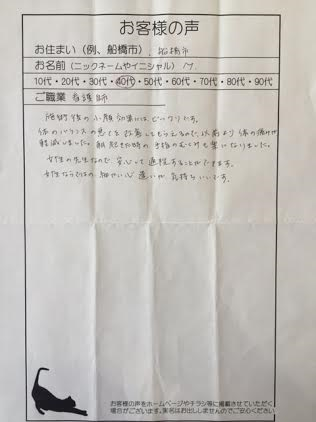 お客様の声
お住まい（例、船橋市） 船橋市
お名前（ニックネームやイニシャル）
10代・20代・30代・40代・50代・60代・70代・80代・90代
ご職業 看護師
施術後の小顔効果にはビックリです。
体のバランスの悪さを改善してもらえるので、以前より体の痛みが
軽減しました。朝起きた時の手指のむくみも楽になりました。
女性の先生なので安心して通院することができます。
女性ならではの細やかな心遣いが気持ちいいです。
お客様の声をホームページやチラシ等に掲載させていただく
場合がございます。実名はお出ししませんのでご安心ください